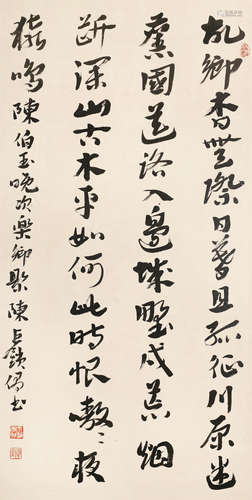 故鄉杳無際日暮且孤征川原迷
舊國道路入邊城野戍荒烟
斷深山古木平如何此時恨噭〻夜
猿鳴陳伯玉晚次樂鄉縣陳巨鎖書